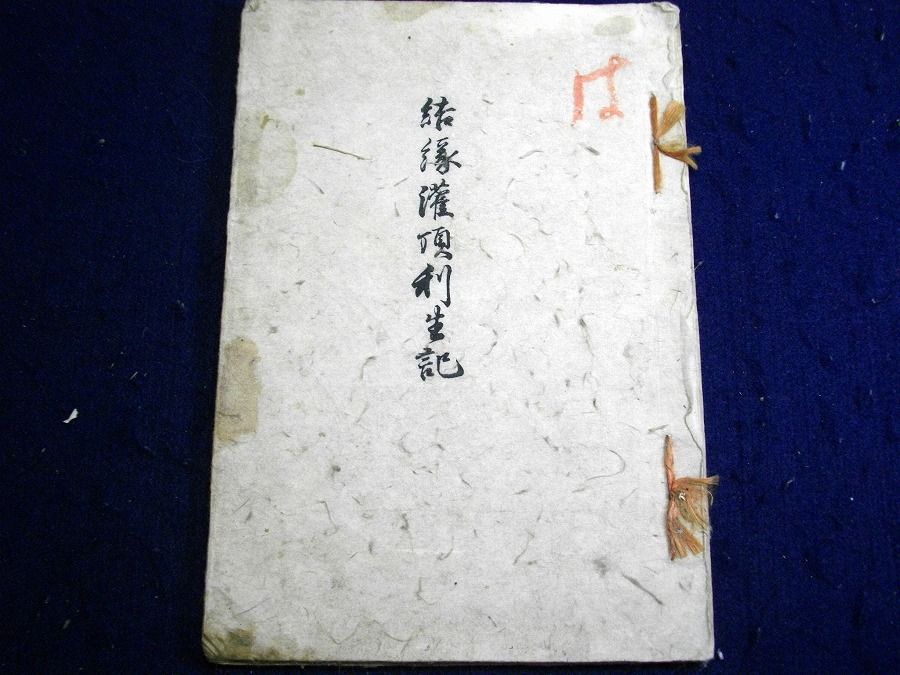 は
結緣灌頂利生記